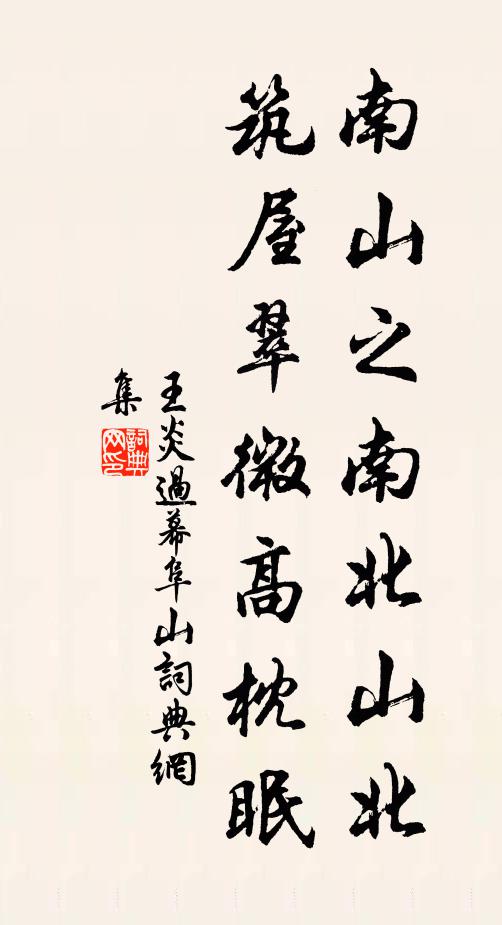 南山之南北山北
筑屋翠微高枕眠
王炎過幕阜山詞典網
集
詞典网印